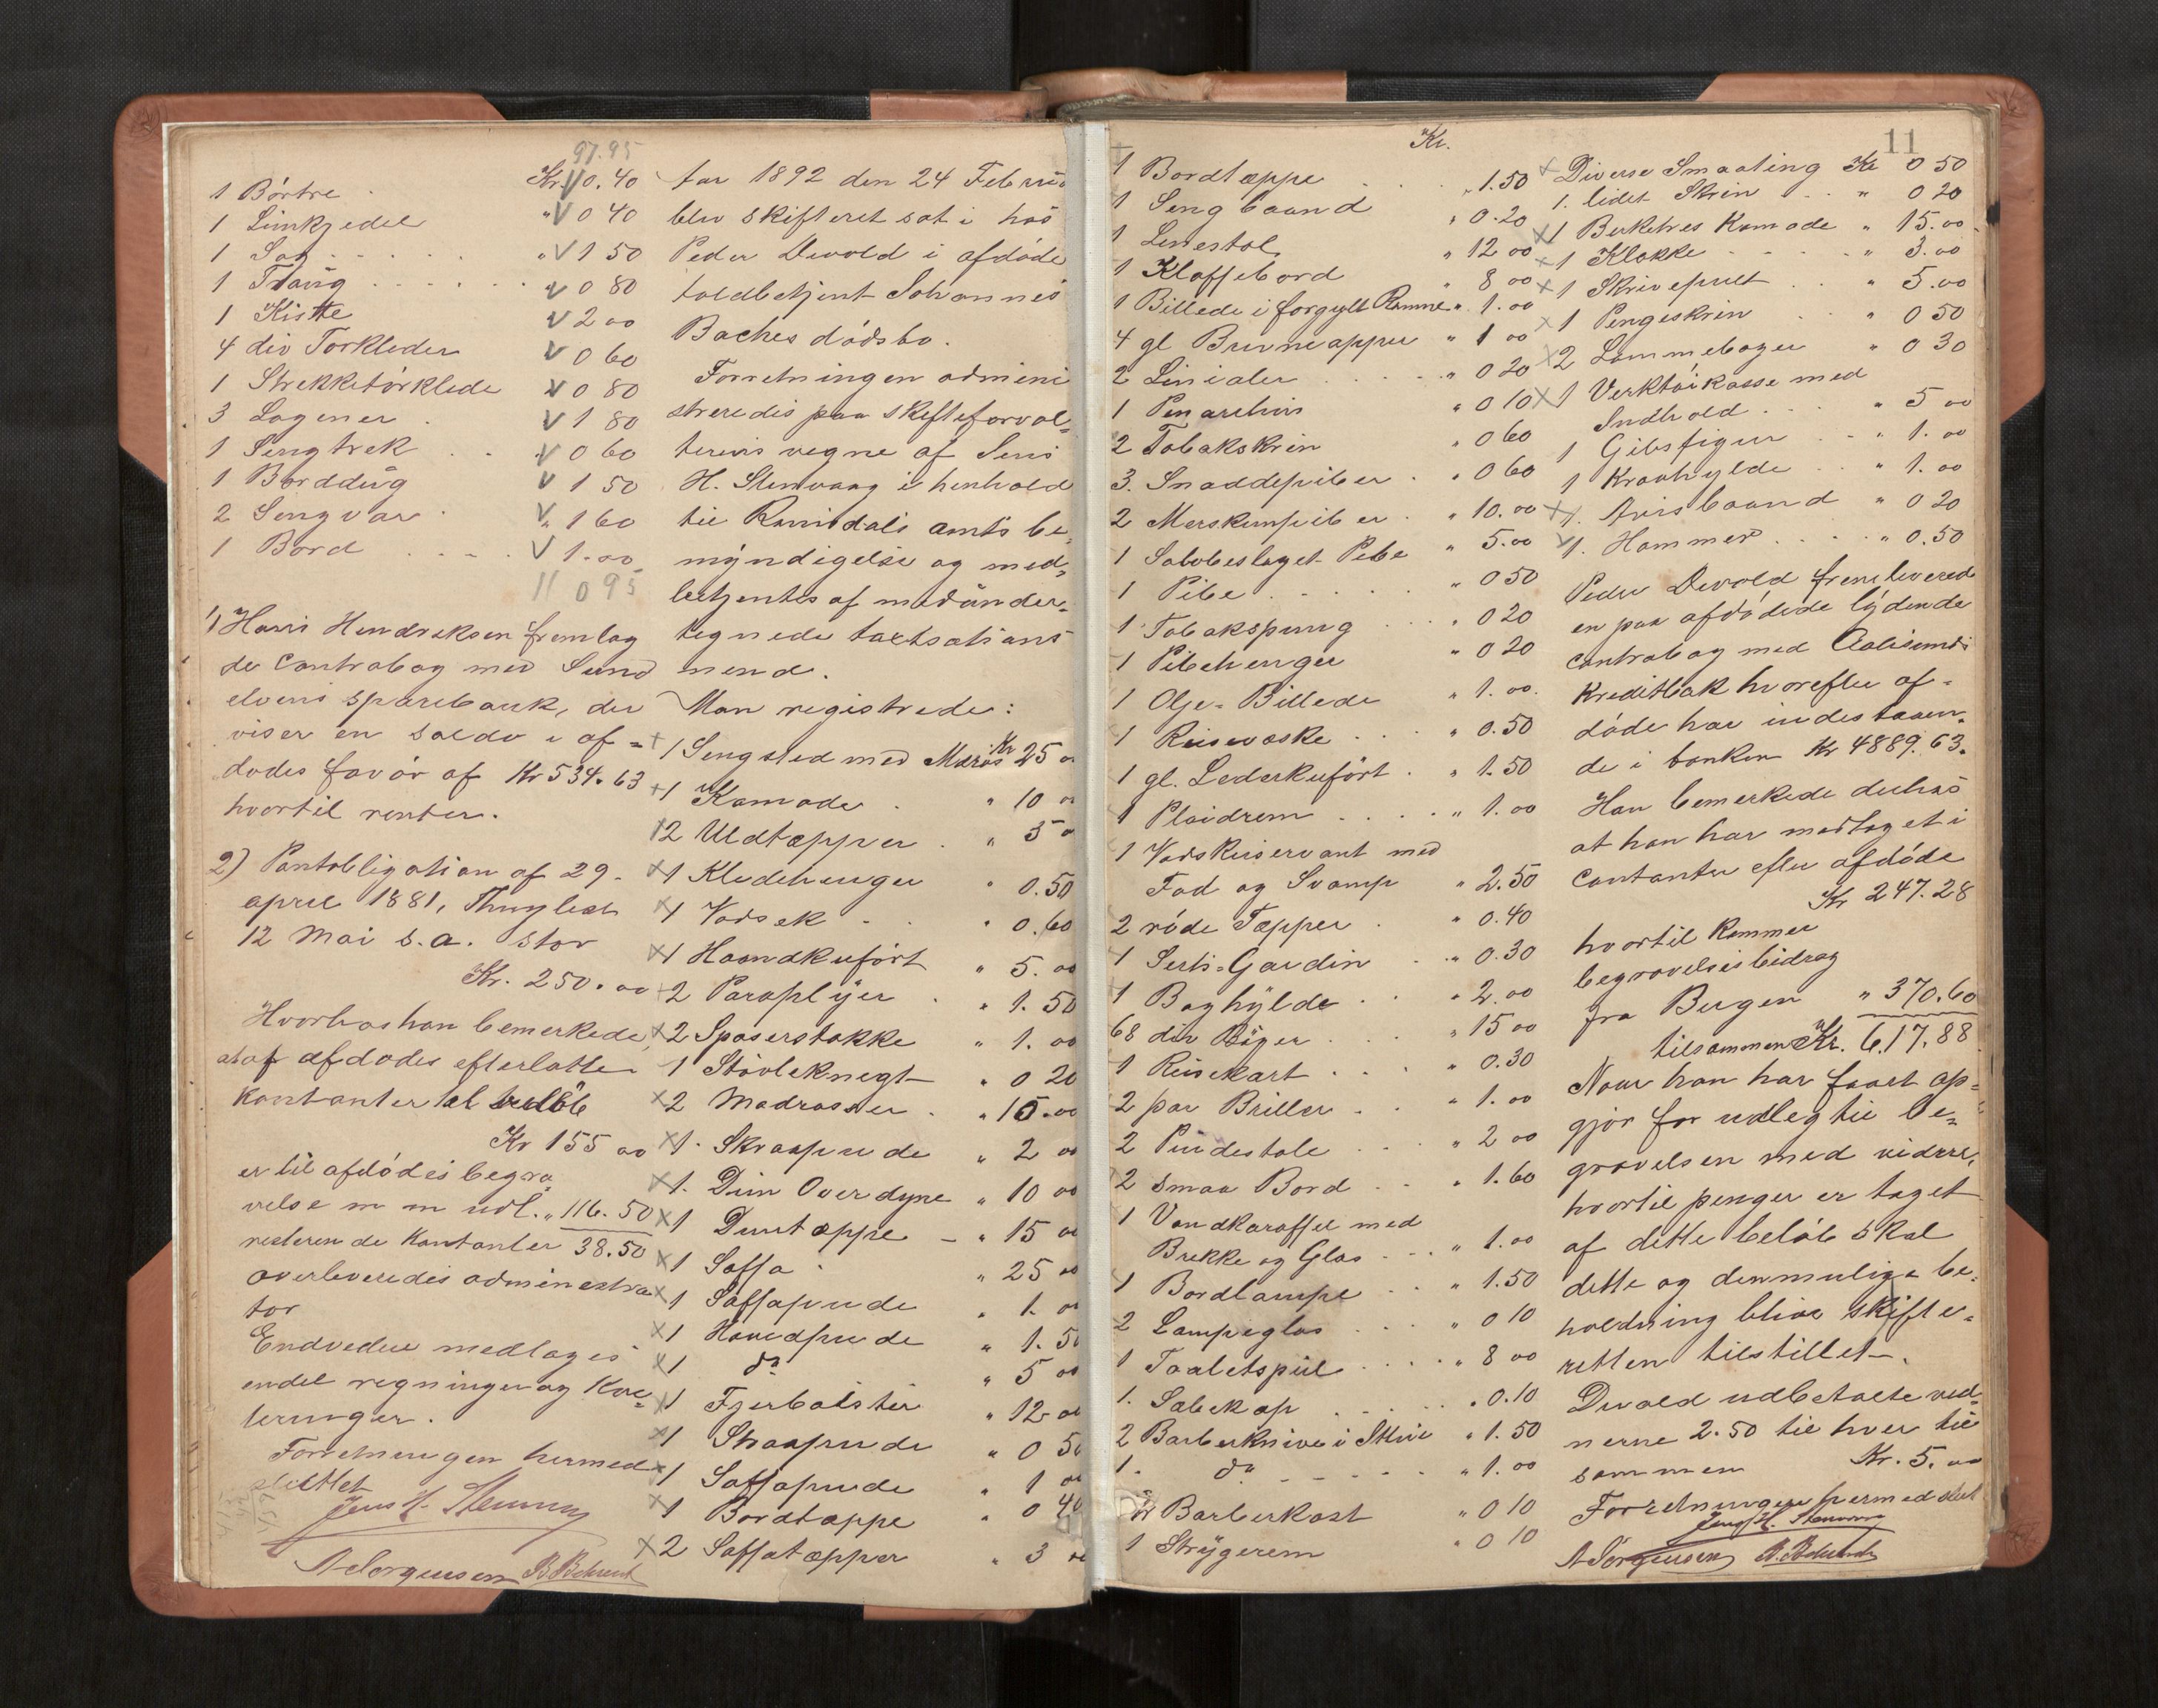 97.95
1 Börtre Kr. 0.40
1 Limkjedel " 0 40
1 Sag " 1 50
1 Traug " 0 80
1 Kiste " 2 00
4 div Torkleder " 0 60
1 Strekketörklede " 0 80
3 Lagener " 1 80
1 Sengtrek " 0 60
1 Borddug " 1 50
2 Sengvar " 1 60
1 Bord 1.00
110 95
1) Hans Hendreksen fremlag
de Contrabog med Sund
elvens sparebank, der
viser en Saldo i af=
dødes favør af Kr 534.63
hvortil renter.
2) Pantobligation af 29.
april 1881, Thinglæst
12 Mai s.a. stor
Kr. 250.00
Hvorhos han bemerkede,
at af afdødes efterlatte
Kontanter til beløb
Kr 155 00
er til afdødes begra
velse m m udl. " 116.50
resterende Kontanter 38.50
overleveredes administra
tor
Endvedere medtoges
endel regninger og Kvi=
teringer.
Forretningen hermed
sluttet
Jens H. Stenvaag
A Jørgensen B. Behrent
Aar 1892 den 24 Februar
blev skifteret sat i hos
Peder Devold i afdøde
toldbetjent Johannes
Baches dødsbo.
Forretningen admini
streredes paa skifteforval=
terens vegne af Jens
H. Stenvaag i henhold
til Romsdals amts be,
myndigelse og med=
betjentes af medunder=
tegnede taxtsations
mend.
Man registrede:
1 Sengsted med Madras Kr 25 00
1 Komode " 10 00
2 Uldtæpper " 5 00
1 Kledehenger " 0.50
1 Vadsek " 0.60
1 Haandkufört " 5.00
2 Paraplyer " 1.50
2 Spaserstokke " 1.00
1 Stövleknegt " 0 20
2 Madrasser " 15.00
1. Skraapude " 2 00
1. Dun Overdyne " 10 00
1 Duntæppe " 15 00
1 Soffa " 25 00
1 Soffapude " 1.00
1 Hovedpude " 1.50
1 do " 5 00
1 Fjerbolster " 12.00
1 Skraapude " 0 50
1 Soffapude " 1 00
1 Bordtæppe " 0 40
2 Soffatæpper " 3 00
11
Kr.
1 Bordtæppe " 1.50
1 Sengbaand " 0.20
1 Lenestol " 12 00
1 Klaffebord " 8 00
1 Billede i forgylt Ramme " 1.00
4 gl Brevmapper " 1 00
2 Linialer " 0 20
1 Penarchiv " 0 10
2 Tobakskrin " 0 60
3. Snaddepiber " 0 60
2 Merskumpiber " 10.00
1 Sølvbeslaget Pibe " 5.00
1 Pibe " 0 50
1 Tobakspung " 0 20
1 Pibehenger " 0 20
1 Olje-Billede " 1.00
1 Reiseveske " 0.50
1 gl. Lederkufört " 1.50
1 Plaidrem " 1.00
1 Vadskeservant med
Fad og Svamp " 2.50
2 røde Tæpper " 0.40
1 Serts-Gardin " 0.30
1 Boghylde " 2.00
68 div Bøger " 15 00
1 Reisekart " 0.30
2 par Briller " 1.00
2 Pindestole " 2 00
2 smaa Bord " 1.60
1 Vandkaraffel med
Brekke og Glas " 1.00
1 Bordlampe " 1.50
2 Lampeglas " 0 10
1 Toaletspeil " 8 00
1. Sæbekop " 0.10
2 Barberknive i Skrin " 1.50
1. do " 1.00
1 Barberkost " 0 10
1 Strygerem " 0 10
Diverse Smaating Kr 0 50
1. lidet Skrin " 0 20
1 Berketres Komode " 15.00
1 Klokke " 3.00
1 Skrivepult " 5.00
1 Pengeskrin " 0 50
2 Lommebøger " 0 30
1 Verktöikasse med
Indhold " 5 00
1 Gibsfigur " 1.00
1 Kraahylde " 1.00
1. Avisbaand " 0 20
1. Hammer " 0.50
Peder Devold fremleverede
en paa afdødede lydende
contrabog med Aalesunds
Kreditbak hvorefter af=
døde har indestaaen=
de i banken Kr 4889.63.
Han bemerkede derhos
at han har modtaget i
contanter efter afdøde
Kr 247.28
hvortil kommer
begravelsesbidrag
fra Bergen " 370.60
tilsammen Kr. 617.88
Naar han har faaet op=
gjør for udleg til be=
gravelsen med videre,
hvortil penger er taget
af dette beløb skal
dette og den mulige be=
holdning blive skifte=
retten tilstillet.
Devold udbetalte ved
nerne 2.50 til hver til
sammen Kr. 5.00
Forretningen hermed slut
Jens H. Stenvaag
A Jörgensen B. Behrendt